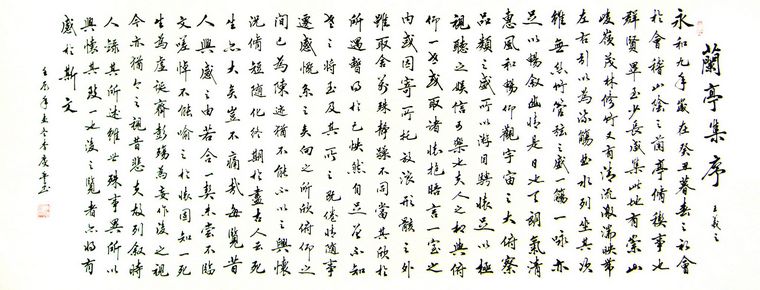 蘭亭集序
王羲之
永和九年歲在癸丑暮春之初會
於會稽山陰之蘭亭脩禊事也
群賢畢至少長咸集此地有崇山
峻嶺茂林修竹又有清流激湍映帶
左右引以為流觴曲水列坐其次
雖無絲竹管弦之盛一觴一詠亦
足以暢敘幽情是日也天朗氣清
惠風和暢仰觀宇宙之大俯察
品類之盛所以遊目騁懷足以極
視聽之娛信可樂也夫人之相與俯
仰一世或取諸懷抱晤言一室之
內或因寄所托放浪形骸之外
雖取舍萬殊靜躁不同當其欣於
所遇暫得於己怏然自足不知
老之將至及其所之既倦情隨事
遷感慨係之矣向之所欣俯仰之
間已為陳迹猶不能不以之興懷
況脩短隨化終期於盡古人云死
生亦大矣豈不痛哉每覽昔
人興感之由若合一契未嘗不臨
文嗟悼不能喻之於懷固知一死
生為虛誕齊彭殤為妄作後之視
今亦猶今之視昔悲夫故列敘時
人錄其所述雖世殊事異所以
興懷其致一也後之覽者亦將有
感於斯文
壬辰年